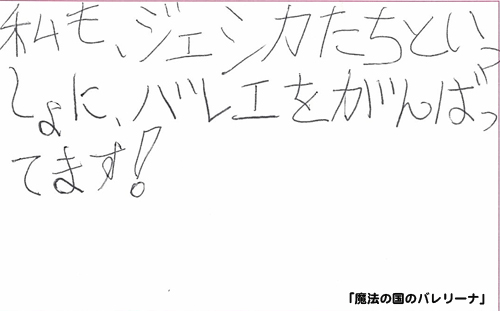 私も、ジェシカたちといっ
しょに、バレエをがんばっ
てます!
「魔法の国のバレリーナ」